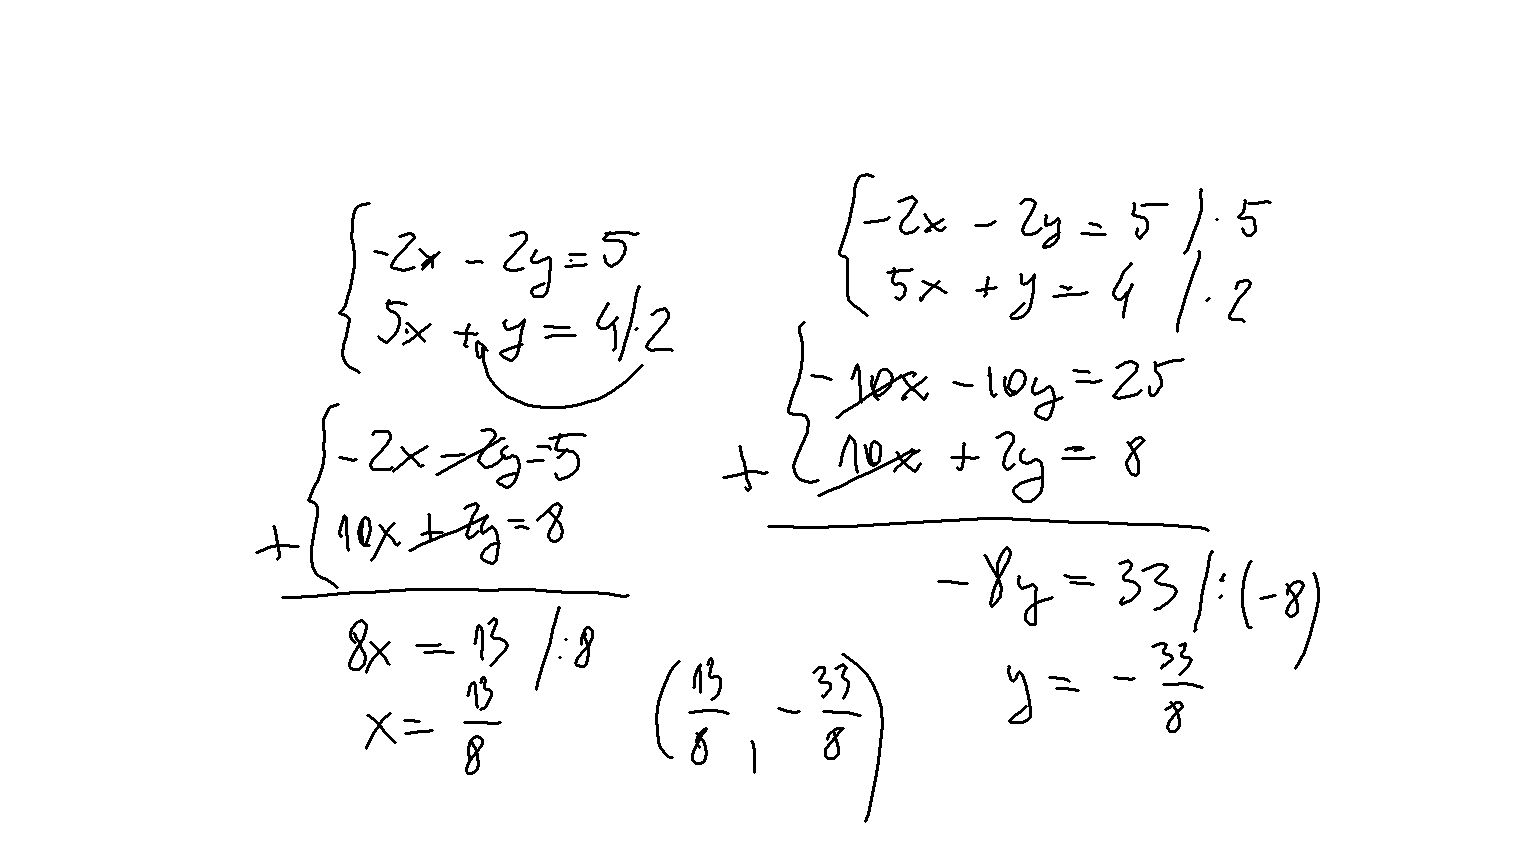 -2x - 2y = 5
5x + y = 4 /·2
-2x - 2y = 5
+ 10x + 2y = 8
8x = 13 /:8
x = 13/8
(13/8, -33/8)
-2x - 2y = 5 /·5
5x + y = 4 /·2
-10x - 10y = 25
+ 10x + 2y = 8
-8y = 33 /:(-8)
y = -33/8